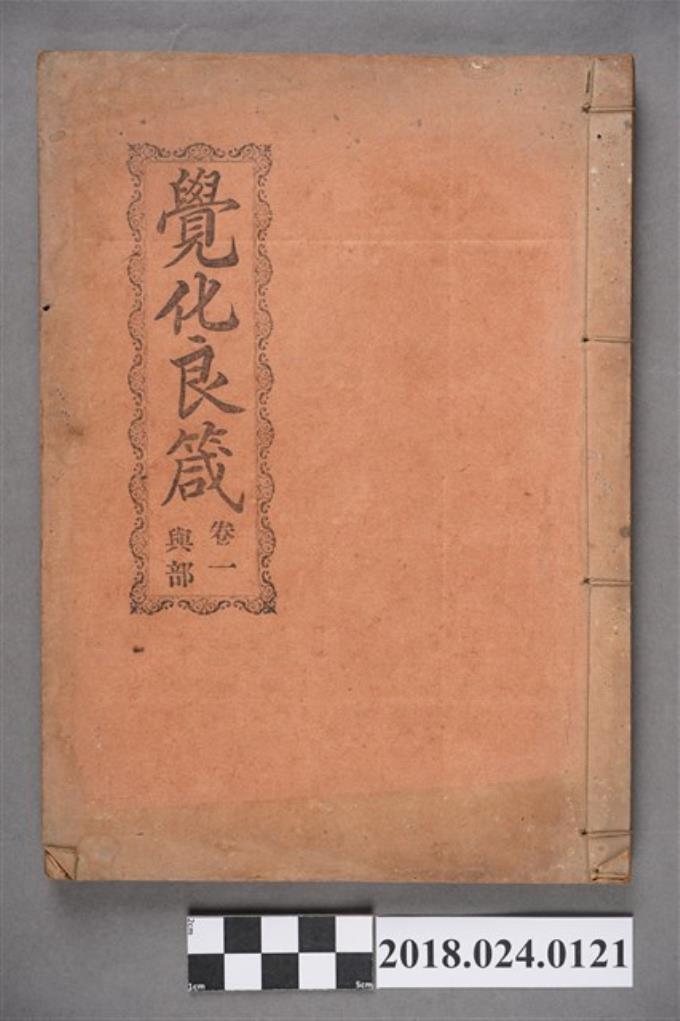 覺化良箴
卷一
與部
2cm
1cm
5cm
2018.024.0121